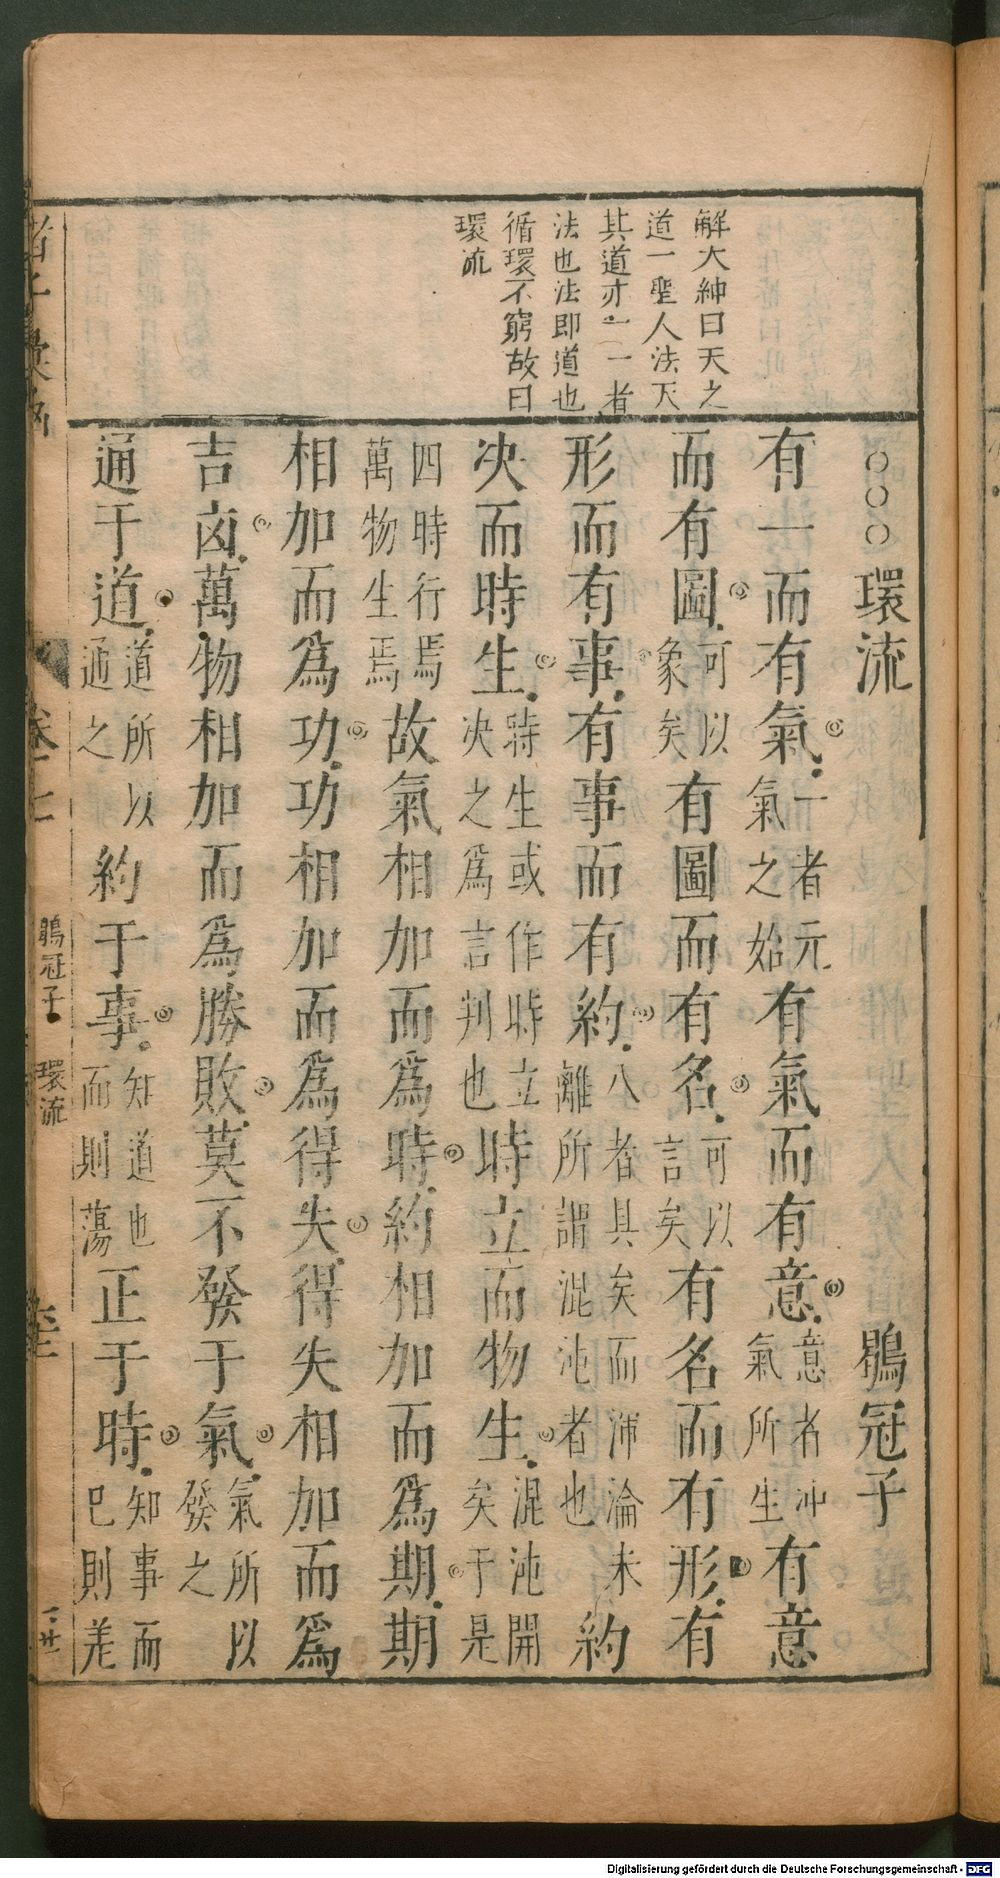 解大紳曰天之
道一聖人法天
其道亦一一者
法也法即道也
循環不窮故曰
環流
○○○環流 鶡冠子
有一而有氣一者元氣之始有氣而有意意者冲氣所生有意
而有圖可以象矣有圖而有名可以言矣有名而有形有
形而有事有事而有約八者具矣而渾淪未離所謂混沌者也約
决而時生時生或作時立决之爲言判也時立而物生混沌開矣于是
四時行焉萬物生焉故氣相加而爲時約相加而爲期期
相加而爲功功相加而爲得失得失相加而爲
吉凶萬物相加而爲勝敗莫不發于氣氣所以發之
通于道道所以通之約于事知道也而則蕩正于時知事而已則差
卷十七 鶡冠子 環流
Digitalisierung gefördert durch die Deutsche Forschungsgemeinschaft - DFG